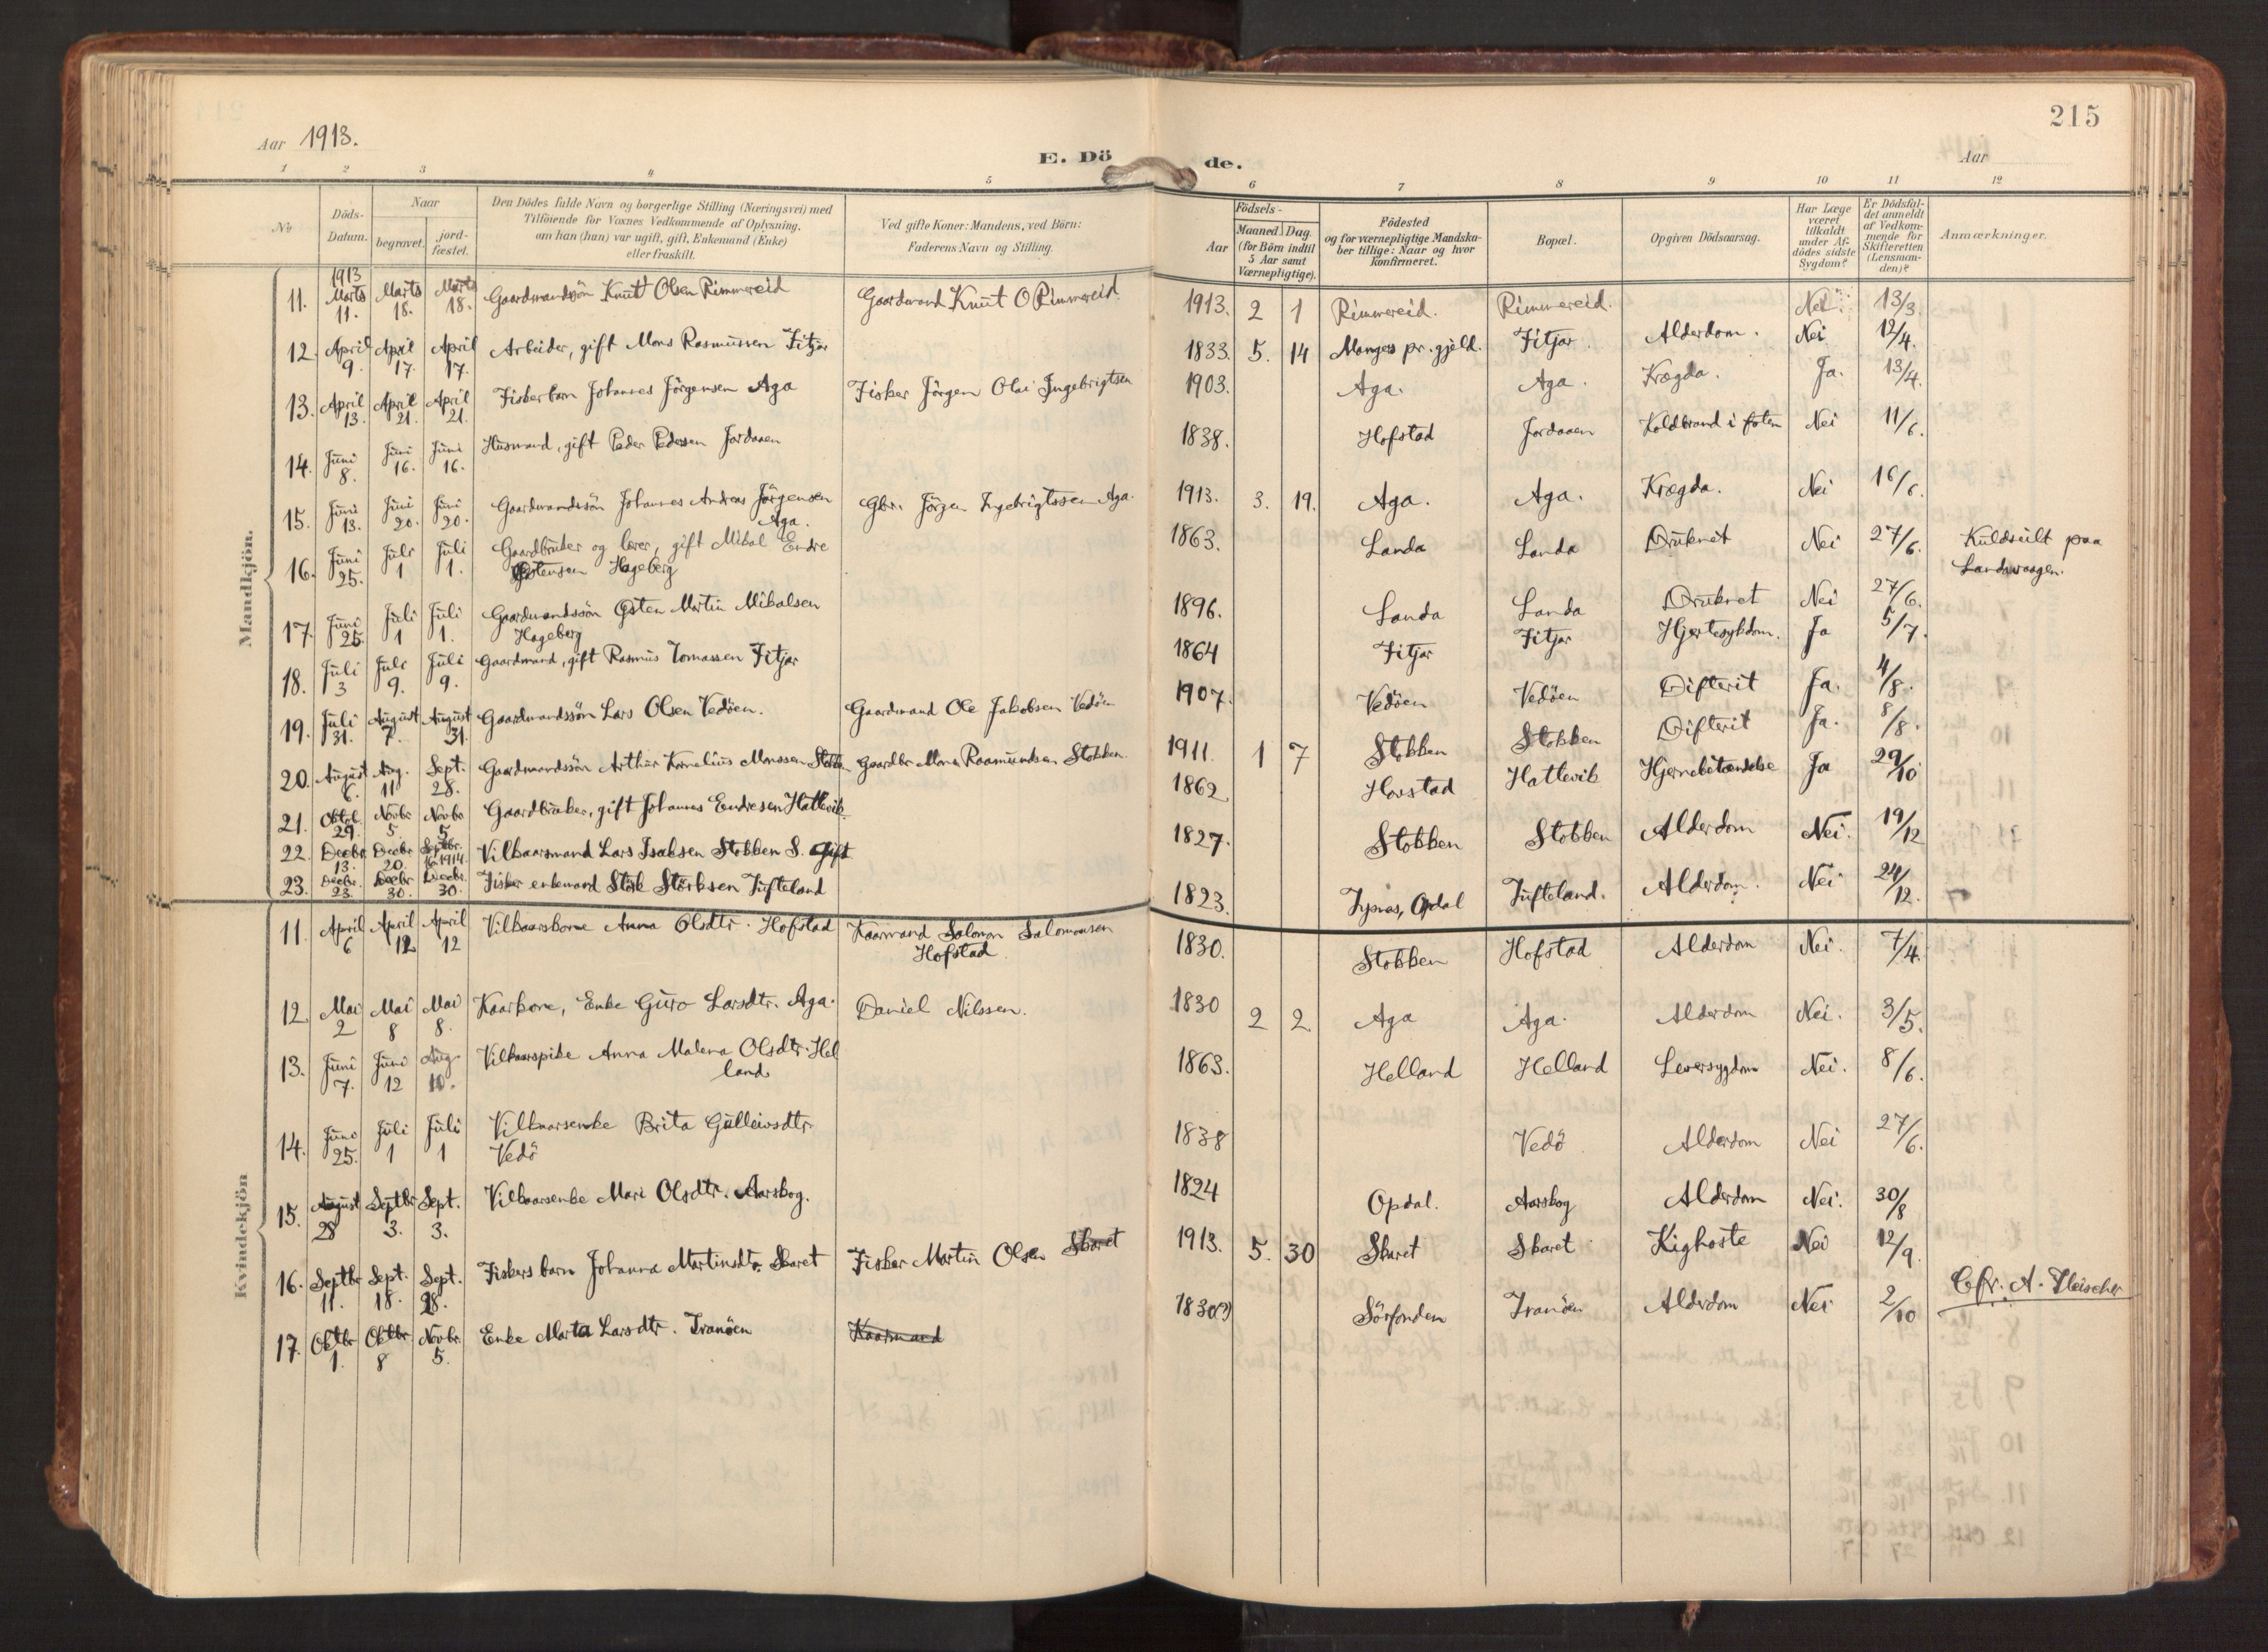 215
Aar 1913.
E. Dö de.
Aar
1 2 3 4 5 6 7 8 9 10 11 12
No
Döds-Datum.
Naar
begravet.
jord-fæstet.
Den Dödes fulde Navn og borgerlige Stilling (Næringsvei) med
Tilföiende for Voxnes Vedkommende af Oplysning,
om han (hun) var ugift, gift, Enkemand (Enke)
eller fraskilt.
Ved gifte Koner: Mandens, ved Börn:
Faderens Navn og Stilling.
Födsels-
Aar
Maaned. Dag.
(for Börn indtil
5 Aar samt
Værnepligtige).
Födested
og for værnepligtige Mandska-
ber tillige: Naar og hvor
konfirmeret.
Bopæl.
Opgiven Dödsaarsag.
Har Læge
været
tilkaldt
under Af-
dödes sidste
Sygdom?
Er Dödsfal-
det anmeldt
af Vedkom-
mende for
Skifteretten
(Lensman-
den)?
Anmærkninger.
Mandkjön.
1913
11. Marts 11. Marts 18. Marts 18. Gaardmandssön Knut Olsen Rimmereid Gaardmand Knut O Rimmereid. 1913. 2 1 Rimmereid. Rimmereid. Nei. 13/3.
12. April 9. April 17. April 17. Arbeider, gift Mons Rasmussen Fitjar 1833. 5. 14 Manger pr. gjeld. Fitjar. Alderdom. Nei 12/4.
13. April 13. April 21. April 21. Fiskerbarn Johannes Jörgensen Aga Fisker Jörgen Olai Ingebrigtsen 1903. Aga. Aga. Krægda. Ja. 13/4.
14. Juni 8. Juni 16. Juni 16. Husmand, gift Peder Pedersen Jordaaen 1838. Hofstad Jordaaen Koldbrand i foten Nei 11/6.
15. Juni 13. Juni 20. Juni 20. Gaardmandssön Johannes Andreas Jörgensen Aga. Gbr. Jörgen Ingebrigtssen Aga. 1913. 3. 19. Aga. Aga. Krægda. Nei 16/6.
16. Juni 25. Juli 1 Juli 1. Gaardbruker og lærer, gift Mikal Endre
Østensen Hageberg 1863. Landa Landa Druknet Nei 27/6. Kuldseilt paa
Landavaagen.
17. Juni 25 Juli 1 Juli 1. Gaardmandssön Østen Martin Mikalsen
Hageberg 1896. Landa Landa Druknet Nei 27/6.
18. Juli 3 Juli 9. Juli 9. Gaardmand, gift Rasmus Tomassen Fitjar 1864 Fitjar Fitjar Hjertesykdom. Ja 5/7.
19. Juli 31. August 7. August 31. Gaardmandssön Lars Olsen Vedöen. Gaardmand Ole Jakobsen Vedöen 1907. Vedöen Vedöen Difterit Ja. 4/8.
20. August 6. Aug. 11 Sept. 28. Gaardmandssön Arthur Kornelius Monssen Stokken Gaardbr Mons Raamundsen Stokken. 1911. 1 7 Stokken Stokken Difterit Ja. 8/8.
21. Oktob. 29. Novbr 5. Novbr 5. Gaardbruker, gift Johannes Endresen Hatlevik 1862 Hovstad Hatlevik Hjernebetændelse Ja 29/10
22. Decbr. 13. Decbr 20. Septbr. 1914. Vilkaarsmand Lars Isaksen Stokken S. Gift 1827. Stokken Stokken Alderdom Nei. 19/12
23. Decbr. 23. Decbr 30. Decbr. 30. Fisker enkemand Störk Störksen Tufteland 1823. Tysnes, Opdal Tufteland. Alderdom. Nei 24/12.
Kvindekjön
11. April 6 April 12 April 12 Vilkaarskone Anna Olsdtr. Hofstad Kaarmand Salomon Salomonsen
Hofstad 1830. Stokken Hofstad Alderdom Nei. 7/4.
12. Mai 2 Mai 8 Mai 8. Kaarkone, Enke Guro Larsdtr. Aga. Daniel Nilssen. 1830 2 2. Aga Aga. Alderdom Nei. 3/5.
13. Juni 7. Juni 12 Aug. 10. Vilkaarspike Anna Malena Olsdtr. Hel
land 1863. Helland Helland Leversygdom Nei. 8/6.
14. Juni 25. Juli 1 Juli 1 Vilkaarsenke Brita Gulleivsdtr.
Vedö 1838 Vedö. Alderdom Nei 27/6.
15. August 28 Septbr 3. Sept. 3. Vilkaarsenke Mari Olsdtr. Aarskog. 1824 Opdal. Aarskog Alderdom Nei. 30/8
16. Septbr 11. Sept. 18. Sept. 28. Fiskers barn Johanna Martinsdtr. Skaret Fisker Martin Olsen Skaret 1913. 5. 30 Skaret Skaret Kighoste Nei 12/9.
17. Oktbr 1. Oktbr 8 Novbr. 5. Enke Marta Larsdtr. Tranöen Kaarmand 1830(?) Sörfonden Tranöen Alderdom Nei 2/10 Cfr. A. Fleischer